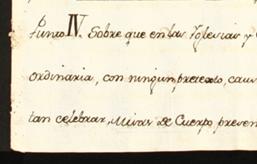 Punto IV. Sobre que en las Yglesias y
ordinaria, con ningun pretexto, caus
tan celebrar Misas de Cuerpo presen